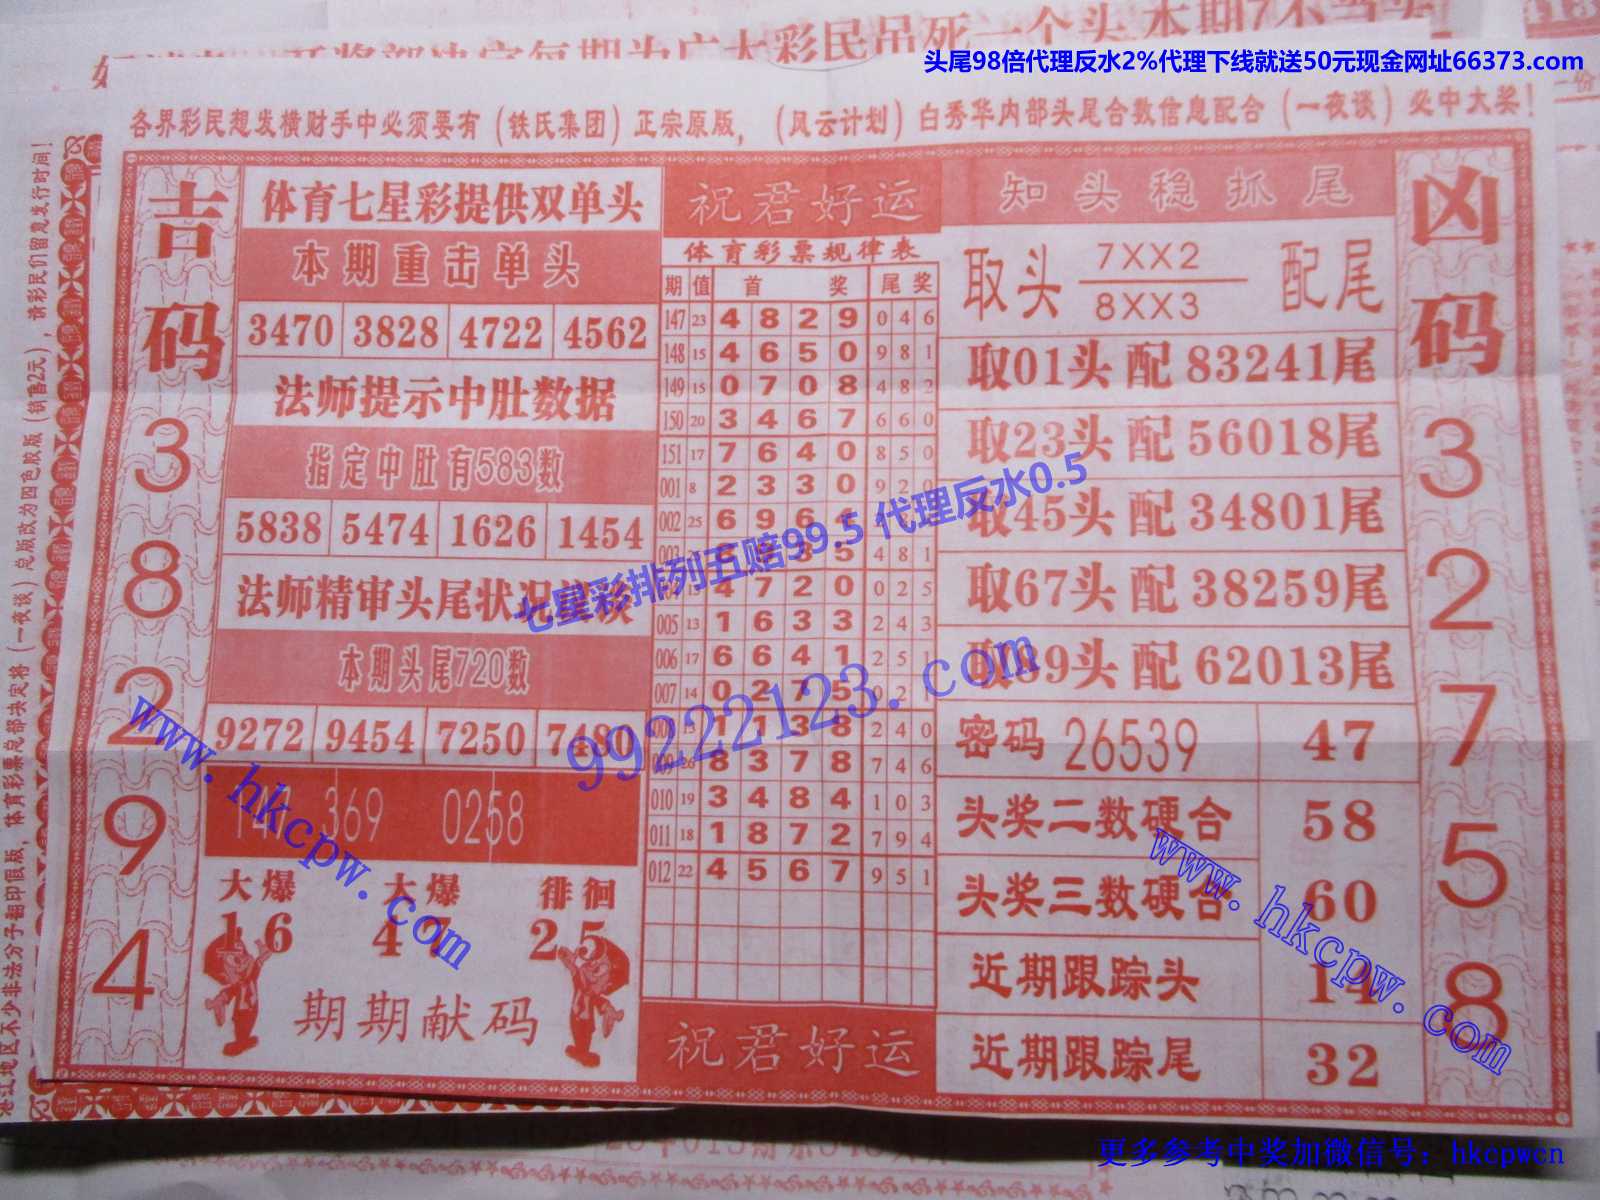 头尾98倍代理反水2%代理下线就送50元现金网址66373.com
各界彩民想发横财手中必须要有（铁氏集团）正宗原版，（风云计划）白秀华内部头尾合数信息配合（一夜谈）必中大奖！
吉码
3
8
2
9
4
体育七星彩提供双单头
本期重击单头
3470 3828 4722 4562
法师提示中肚数据
指定中肚有583数
5838 5474 1626 1454
法师精审头尾状况
本期头尾720数
9272 9454 7250 7480
369 0258
大爆 大爆 徘徊
16 47 25
期期献码
祝君好运
体育彩票规律表
期 值 首 奖 尾 奖
147 23 4 8 2 9 0 4 6
148 15 4 6 5 0 9 8 1
149 15 0 7 0 8 4 8 2
150 20 3 4 6 7 6 6 0
151 17 7 6 4 0 8 5 0
001 8 2 3 3 0 9 2 0
002 25 6 9 6
003 5 4 8 1
4 7 2 0 0 2 5
005 13 1 6 3 3 2 4 3
006 17 6 6 4 1 2 5 1
007 14 0 2 7 5 0 2 1
13 1 1 3 8 2 4 0
009 26 8 3 7 8 7 4 6
010 19 3 4 8 4 1 0 3
011 18 1 8 7 2 7 9 4
012 22 4 5 6 7 9 5 1
祝君好运
知头稳抓尾
取头 7XX2 配尾
8XX3
取01头 配 83241尾
取23头 配 56018尾
取45头 配 34801尾
取67头 配 38259尾
取89头 配 62013尾
密码 26539 47
头奖二数硬合 58
头奖三数硬合 60
近期跟踪头 14
近期跟踪尾 32
凶码
3
2
7
5
8
七星彩排列五赔99.5 代理反水0.5
99222123.com
www.hkcpw.com
www.hkcpw.com
更多参考中奖加微信号：hkcpwcn